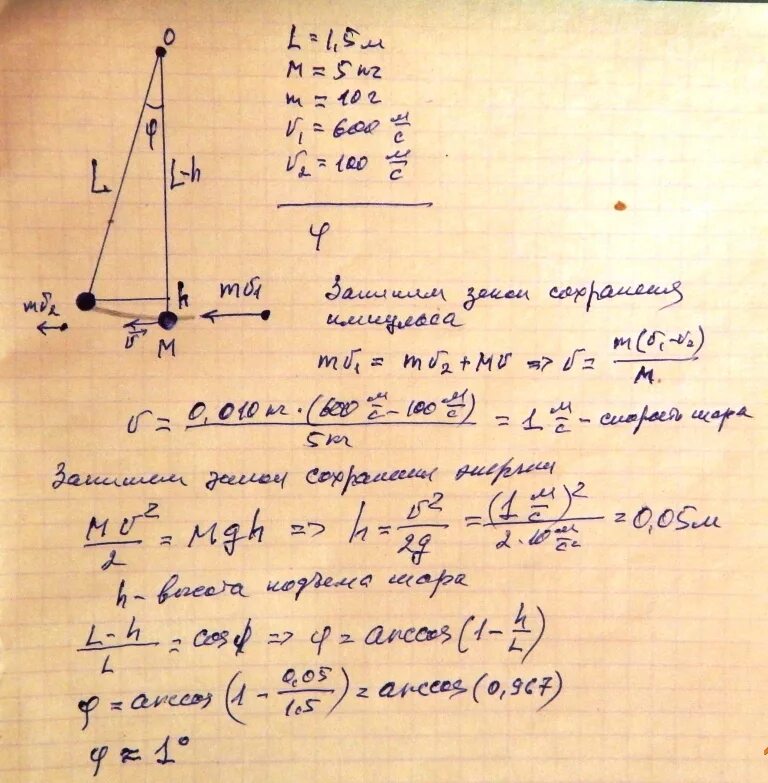 O
φ
L
L-h
h
mv₂
mv₁
v
M
L = 1,5 м
M = 5 кг
m = 10 г
v₁ = 600 м/с
v₂ = 100 м/с
φ
Запишем закон сохранения
импульса
mv₁ = mv₂ + Mv => v = m(v₁-v₂)/M.
v = 0,010 кг · (600 м/с - 100 м/с)/5 кг = 1 м/с - скорость шара
Запишем закон сохранения энергии
Mv²/2 = Mgh => h = v²/2g = (1 м/с)²/2·10 м/с² = 0,05 м
h - высота подъема шара
L-h/L = cosφ => φ = arccos(1 - h/L)
φ = arccos(1 - 0,05/1.5) = arccos(0,967)
φ ≈ 1°